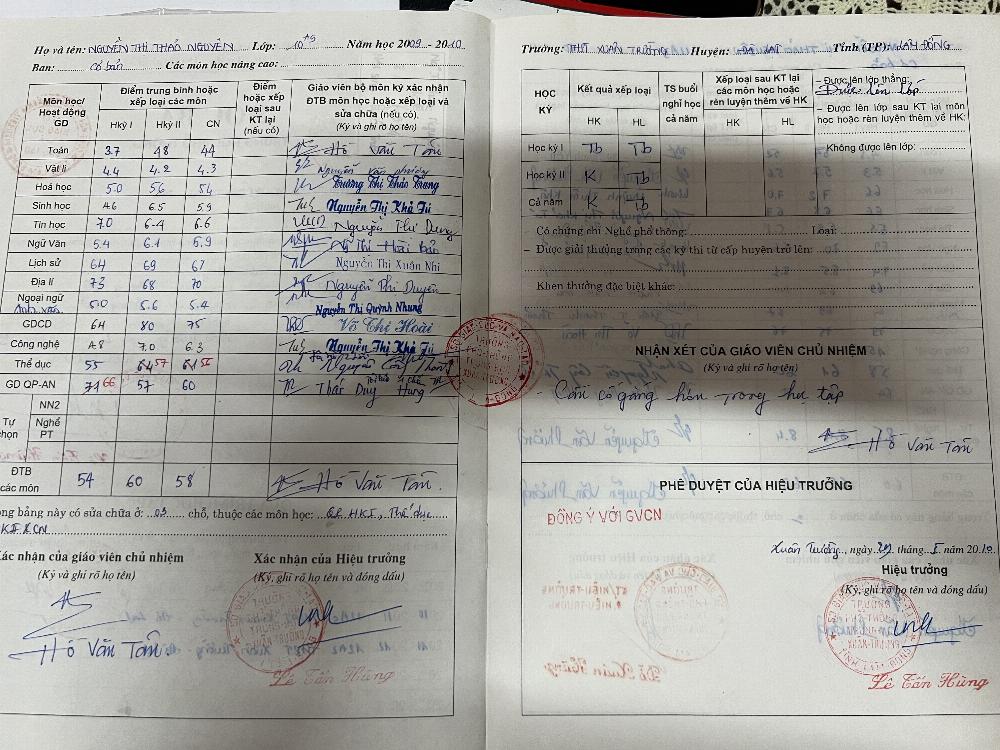 Họ và tên: NGUYỄN THỊ THẢO NGUYÊN Lớp: 10 Năm học 2009 - 2010
Ban: Cơ bản Các môn học nâng cao:
Môn học/ Hoạt động GD
Điểm trung bình hoặc xếp loại các môn
Hkỳ I Hkỳ II CN
Điểm hoặc xếp loại sau KT lại (nếu có)
Giáo viên bộ môn ký xác nhận ĐTB môn học hoặc xếp loại và sửa chữa (nếu có).
(Ký và ghi rõ họ tên)
Toán 3.7 48 44 Hồ Văn Tấn
Vật lí 4.4 4.2 4.3 Nguyễn Văn
Hoá học 5.0 56 54 Trương Thị Thảo Trang
Sinh học 6.5 5.9 Nguyễn Thị Khả Tú
Tin học 7.0 6.4 6.6 Nguyễn Thị Dung
Ngữ Văn 5.4 6.1 5.9 Thị Hoài
Lịch sử 64 69 67 Nguyễn Thị Xuân Nhi
Địa lí 73 68 70 Nguyễn Thị Duyên
Ngoại ngữ Anh văn 5.0 5.6 5.4 Nguyễn Thị Quỳnh Nhung
GDCD 64 80 75 Võ Thị Hoài
Công nghệ 7.0 6.3 Nguyễn Thị Khả Tú
Thể dục 55 57 Nguyễn
GD QP-AN 66 57 60 Duy Hưng
Tự chọn
NN2
Nghề PT
ĐTB các môn 54 60 58 Hồ Văn Tấn
Trong bảng này có sửa chữa ở: 03 chỗ, thuộc các môn học: HKI, Thể dục
Xác nhận của giáo viên chủ nhiệm
(Ký và ghi rõ họ tên)
Hồ Văn Tấn
Xác nhận của Hiệu trưởng
(Ký, ghi rõ họ tên và đóng dấu)
Lê Tấn Hùng
Trường: THPT XUÂN TRƯỜNG Huyện: ĐÀ LẠT Tỉnh (TP): LÂM ĐỒNG
HỌC KỲ
Kết quả xếp loại
HK HL
TS buổi nghỉ học cả năm
Xếp loại sau KT lại các môn học hoặc rèn luyện thêm về HK
HK HL
– Được lên lớp thẳng:
Được lên lớp
– Được lên lớp sau KT lại môn học hoặc rèn luyện thêm về HK:
Không được lên lớp:
Học kỳ I Tb Tb
Học kỳ II K Tb
Cả năm K Tb
– Có chứng chỉ Nghề phổ thông: Loại:
– Được giải thưởng trong các kỳ thi từ cấp huyện trở lên:
Khen thưởng đặc biệt khác:
NHẬN XÉT CỦA GIÁO VIÊN CHỦ NHIỆM
(Ký và ghi rõ họ tên)
- Cần cố gắng hơn trong học tập
Hồ Văn Tấn
PHÊ DUYỆT CỦA HIỆU TRƯỞNG
ĐỒNG Ý VỚI GVCN
Xuân Trường, ngày 29 tháng 5 năm 2010
Hiệu trưởng
(Ký, ghi rõ họ tên và đóng dấu)
Lê Tấn Hùng